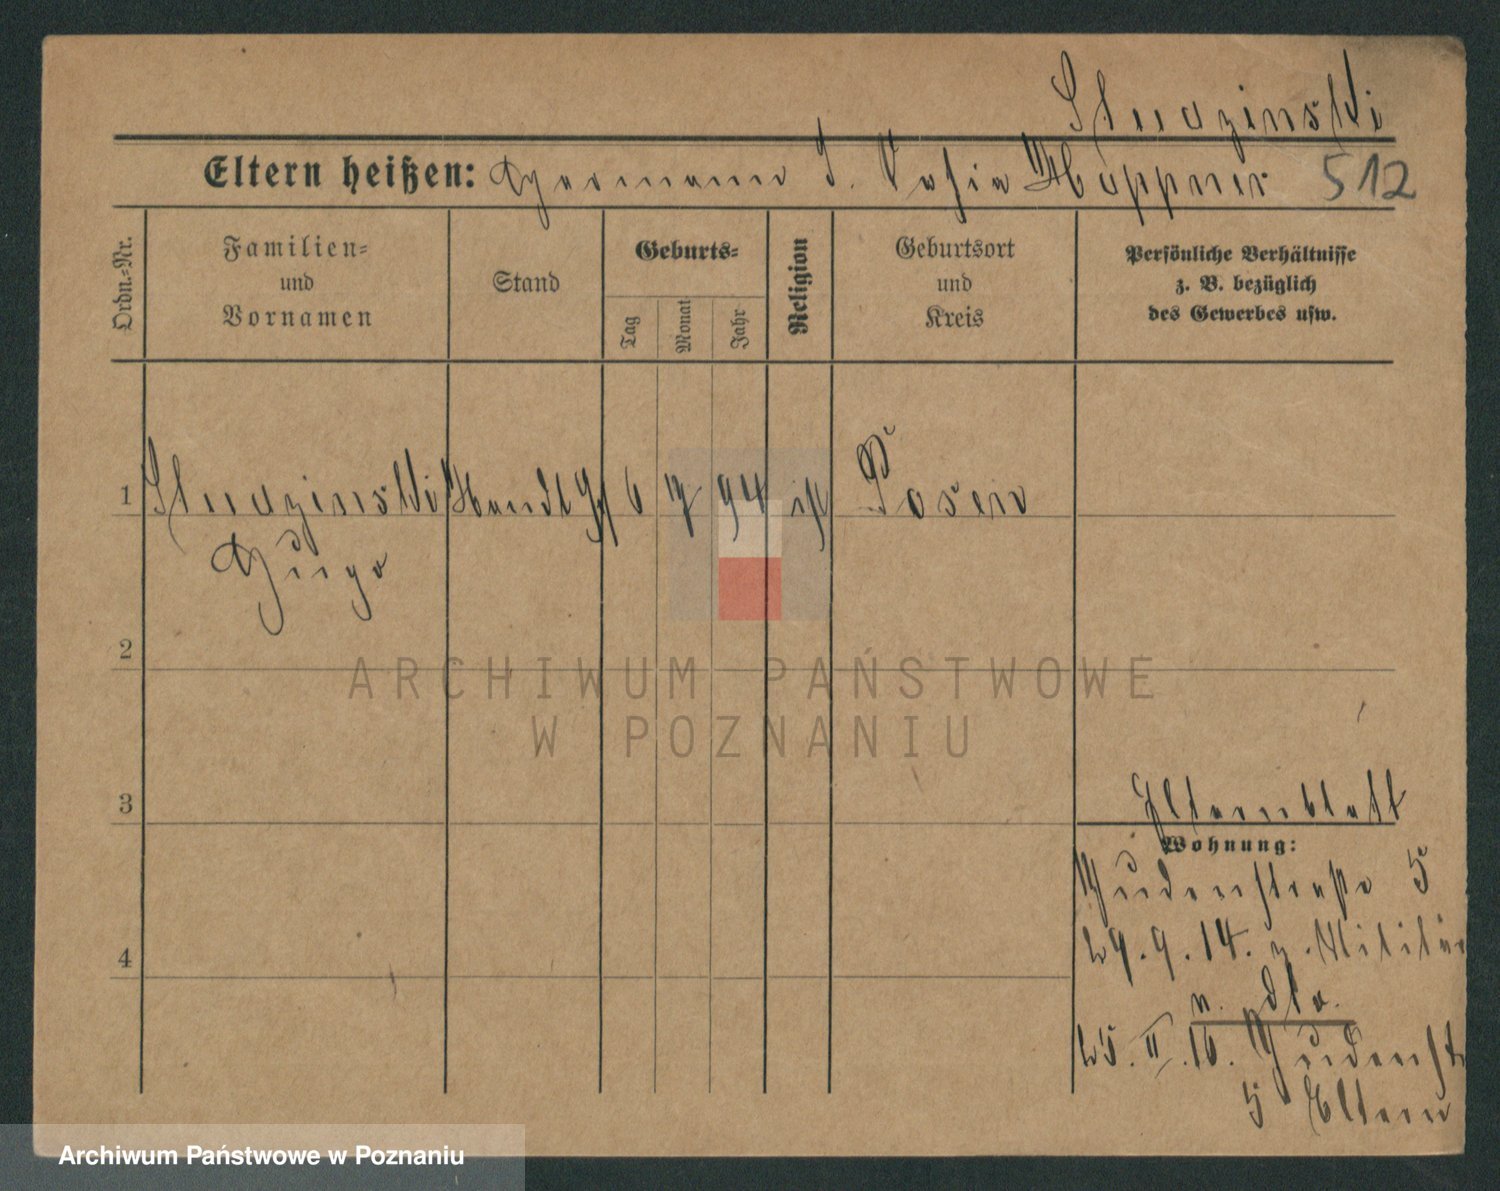 Studzinski
Eltern heißen: Hermann S. Rosa Höppner 512
Ordn.-Nr.
Familien-
und
Vornamen
Stand
Geburts-
Tag
Monat
Jahr
Religion
Geburtsort
und
Kreis
Persönliche Verhältnisse
z. B. bezüglich
des Gewerbes usw.
1 Studzinski Handl Gh 6 94 isr Posen
Hugo
2
3
4
Elternblatt
Wohnung:
Judenstraße 5
29.9.14. z. Militär
n. dto.
25. II. 16. Judenstr
5 Eltern
ARCHIWUM PAŃSTWOWE
W POZNANIU
Archiwum Państwowe w Poznaniu